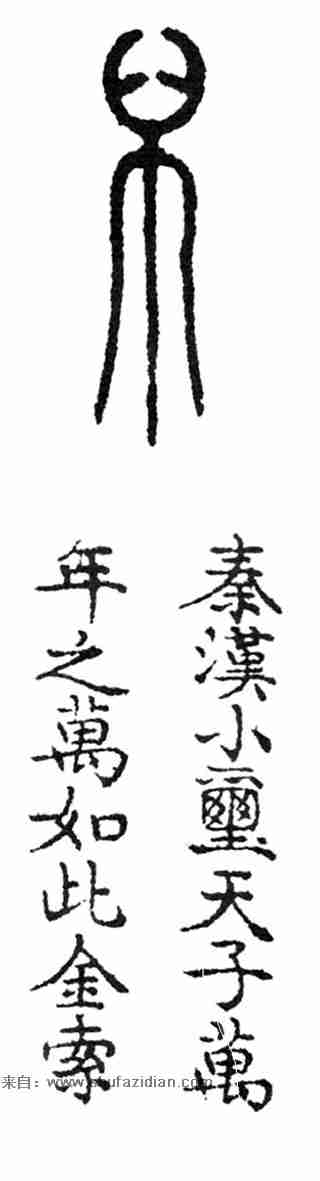 萬
秦漢小璽天子萬
年之萬如此金索
来自：www.shufazidian.com